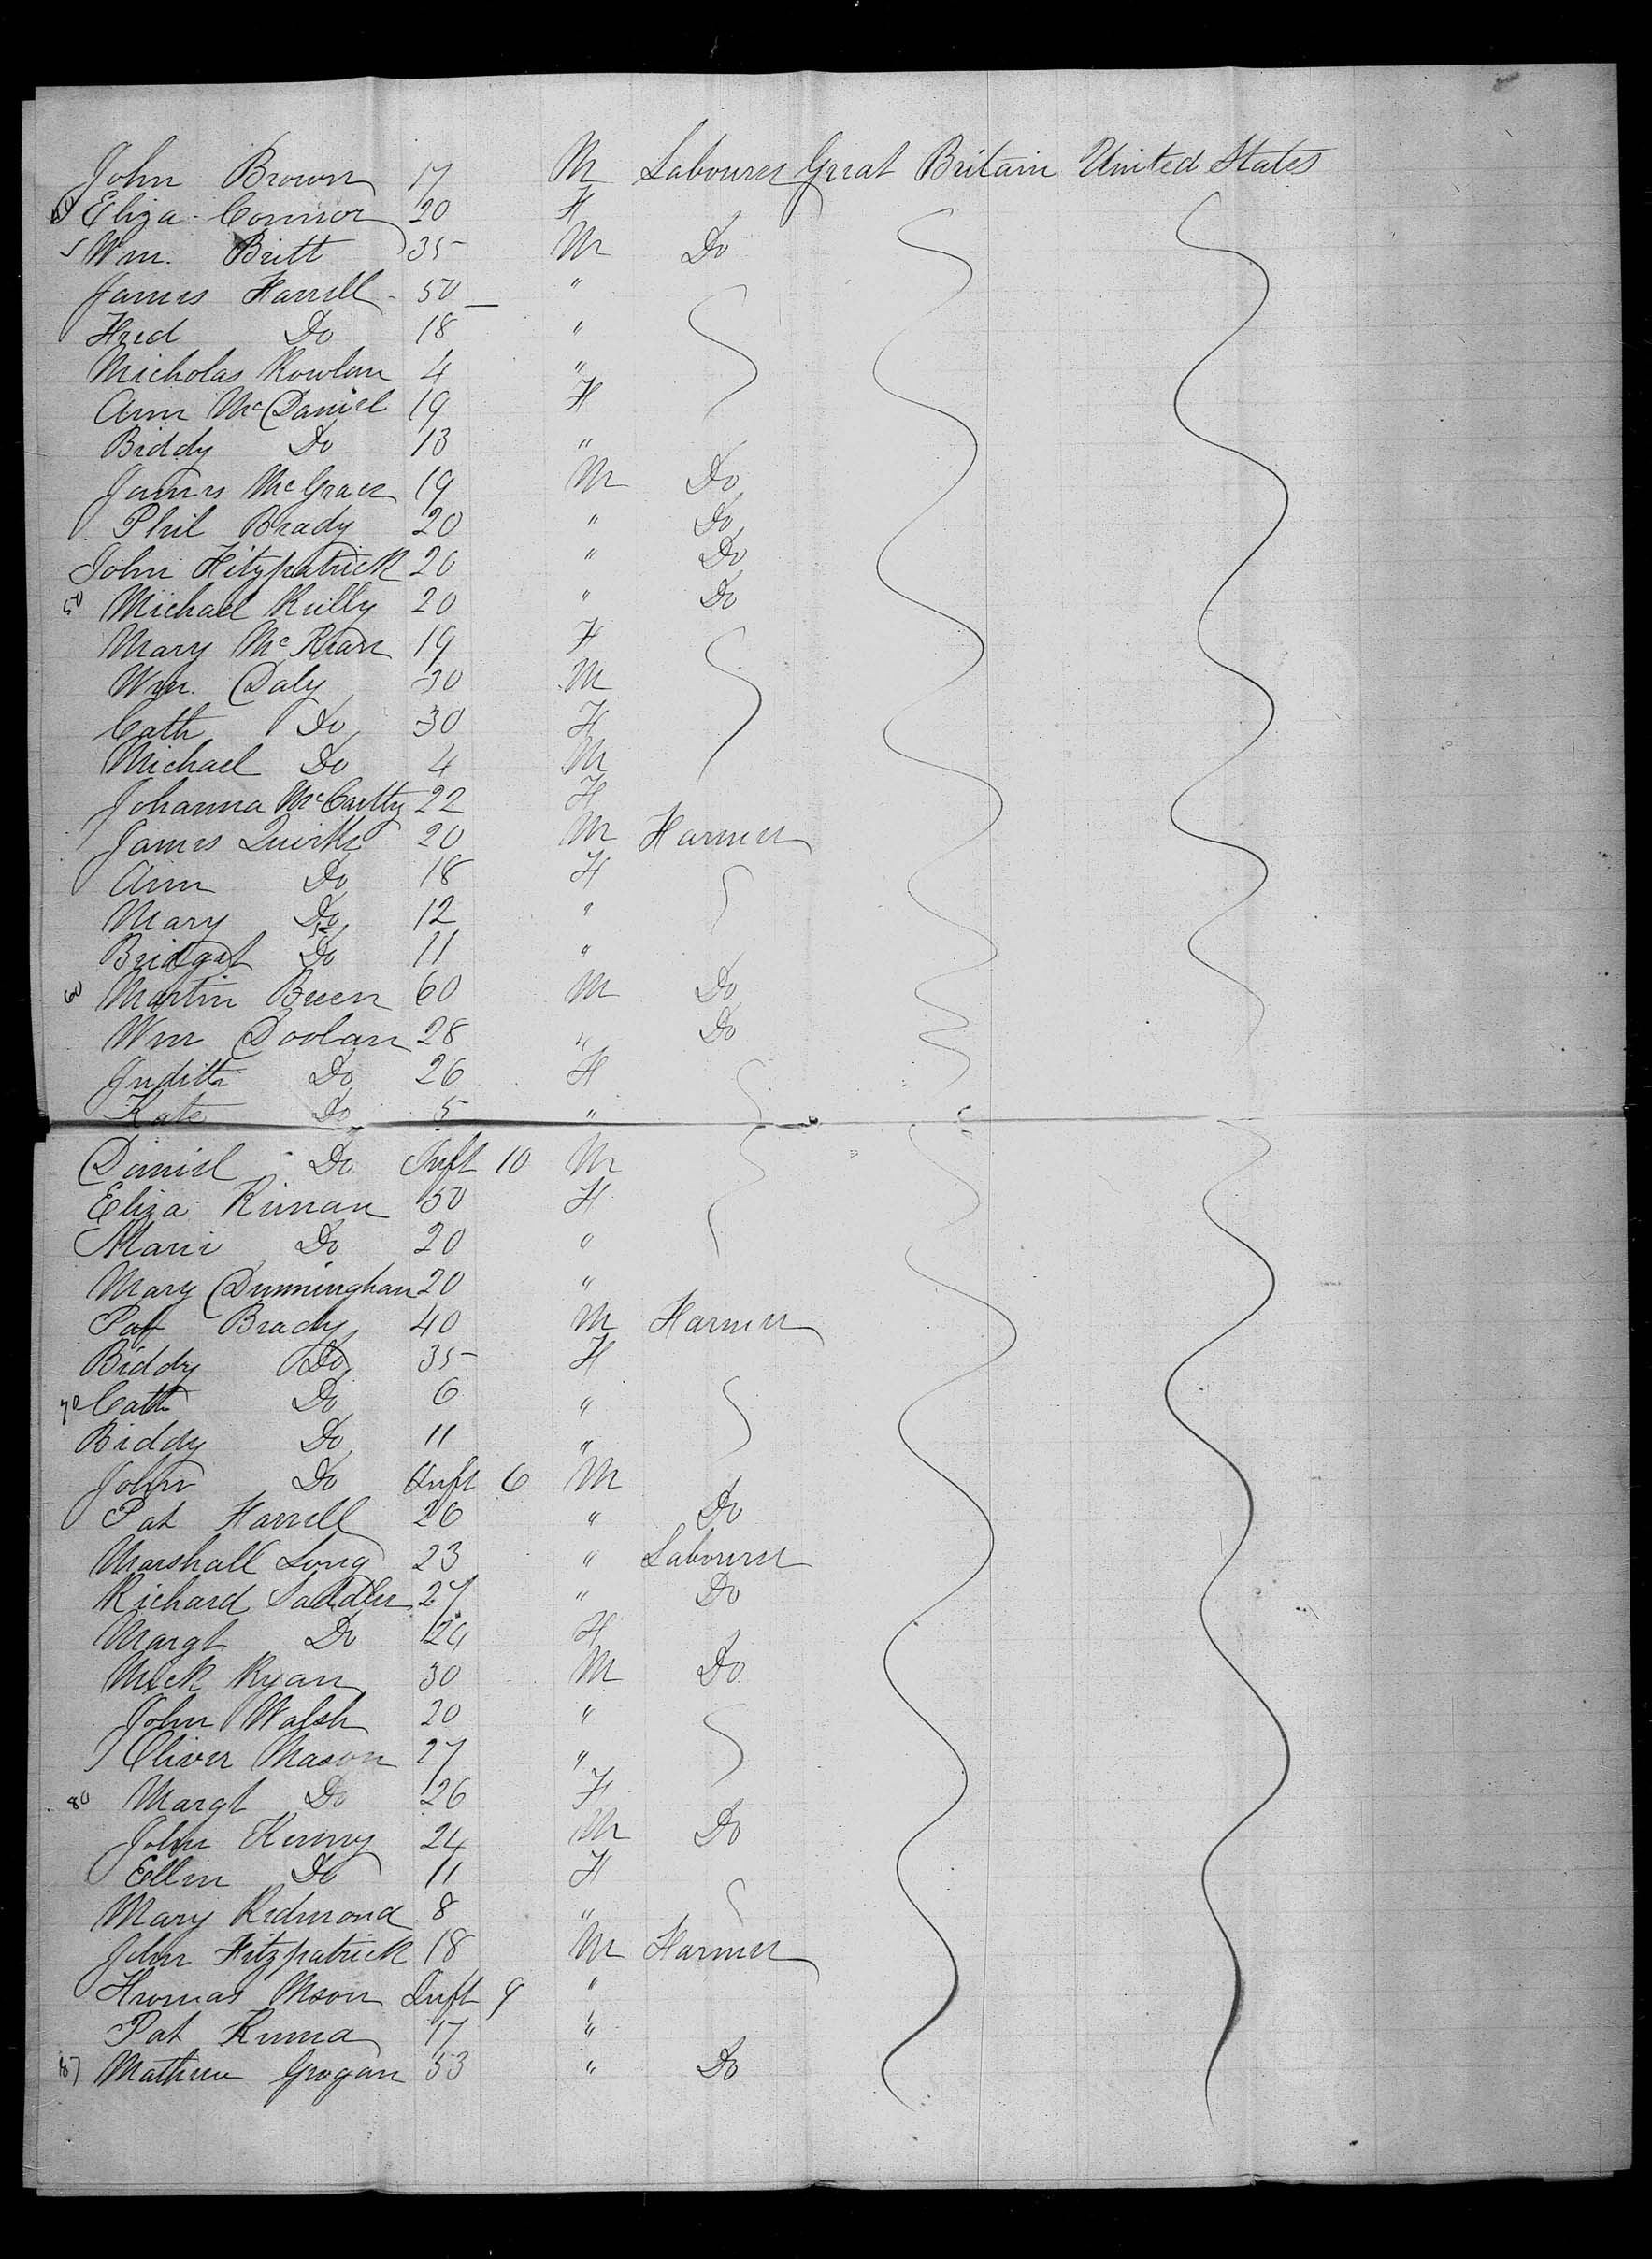 John Brown 17 M Labourer Great Britain United States
40 Eliza Connor 20 F
Wm. Britt 35 M Do
James Farrell 50 "
Fred Do 18 "
Nicholas Rowlan 4 "
Ann McDaniel 19 F
Biddy Do 13 "
James McGrace 19 M Do
Phil Brady 20 " Do
John Fitzpatrick 20 " Do
50 Michael Reilly 20 " Do
Mary 19 F
Wm. Daly 30 M
Cath Do 30 F
Michael Do 4 M
Johanna McCartty 22 F
James Quirke 20 M Farmer
Ann Do 18 F
Mary Do 12 "
Bridget Do 11 "
60 Martin Breen 60 M Do
Wm Doolan 28 " Do
Judith Do 26 F
Kate Do 5 "
Daniel Do Inft 10 M
Eliza 50 F
Marie Do 20 "
Mary Cunningham 20 "
Pat Brady 40 M Farmer
Biddy Do 35 F
70 Cath Do 6 "
Biddy Do 11 "
John Do Inft 6 M
Pat Farrell 26 " Do
Marshall Long 23 " Labourer
Richard Saddler 27 " Do
Margt Do 24 F
Mick Ryan 30 M Do
John Walsh 20 "
Oliver Mason 27 "
80 Margt Do 26 F
John Kenny 24 M Do
Ellen Do 11 F
Mary Redmond 8 "
John Fitzpatrick 18 M Farmer
Thomas Inft 9 "
Pat 17 "
87 Mathew Grogan 53 " Do